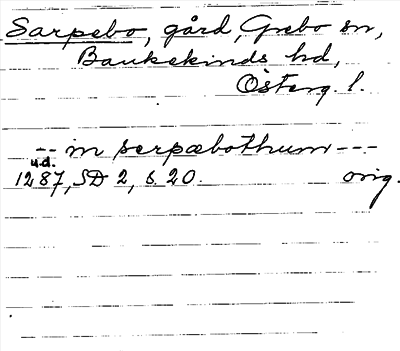 Sarpebo, gård, Grebo sn,
Bankekinds hd,
Österg. l.
-- in serpæbothum ---
u.d.
1287, SD 2, s. 20. orig.